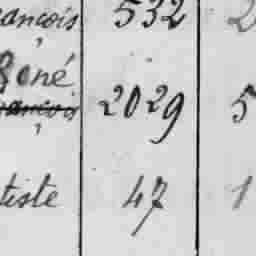 ançois 532 2
René
ançois 2029 5
tiste 47 1